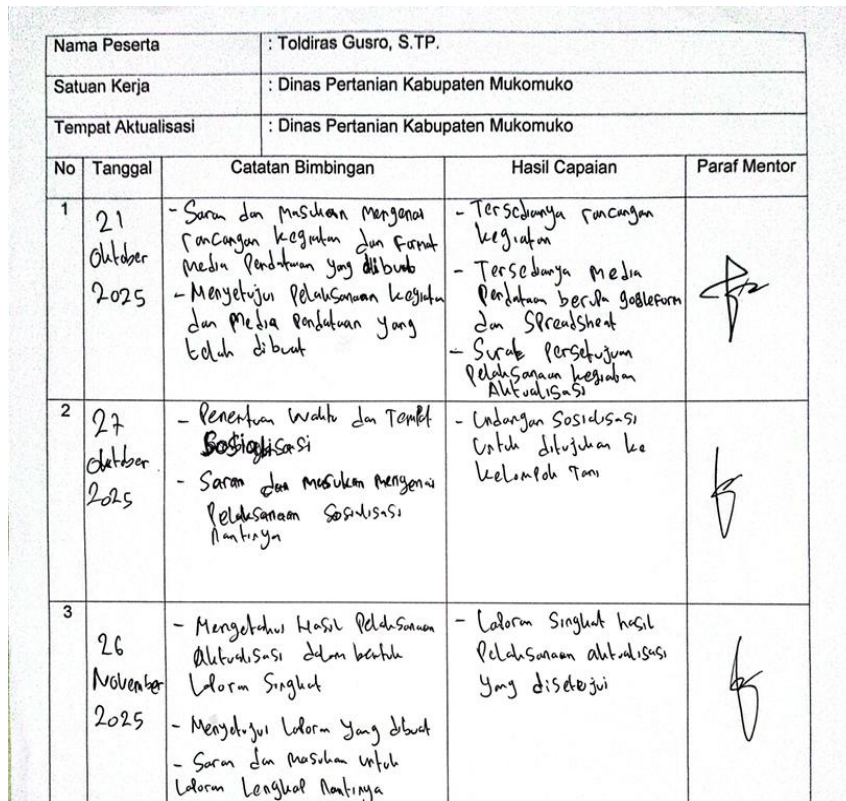 Nama Peserta : Toldiras Gusro, S.TP.
Satuan Kerja : Dinas Pertanian Kabupaten Mukomuko
Tempat Aktualisasi : Dinas Pertanian Kabupaten Mukomuko
No Tanggal Catatan Bimbingan Hasil Capaian Paraf Mentor
1
21
Oktober
2025
- Saran dan Masukan Mengenai
rancangan kegiatan dan format
Media Pendataan yang dibuat
- Menyetujui Pelaksanaan kegiatan
dan Media Pendataan yang
telah dibuat
- Tersedianya rancangan
kegiatan
- Tersedianya Media
Pendataan berupa googleform
dan Spreadsheat
- Surat Persetujuan
Pelaksanaan kegiatan
Aktualisasi
2
27
Oktober
2025
- Penentuan Waktu dan Tempat
Sosialisasi
- Saran dan Masukan Mengenai
Pelaksanaan Sosialisasi
Nantinya
- Undangan Sosialisasi
Untuk ditujukan ke
Kelompok Tani
3
26
November
2025
- Mengetahui Hasil Pelaksanaan
Aktualisasi dalam bentuk
Laporan Singkat
- Menyetujui Laporan yang dibuat
- Saran dan Masukan untuk
Laporan Lengkap Nantinya
- Laporan Singkat hasil
Pelaksanaan aktualisasi
yang disetejui